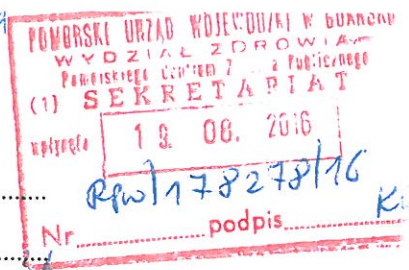 POMORSKI URZĄD WOJEWÓDZKI W GDAŃSKU
WYDZIAŁ ZDROWIA
Pomorskiego Centrum Z Publicznego
(1) SEKRETARIAT
wpłynęło 19. 08. 2016
178278/16
Nr............podpis............